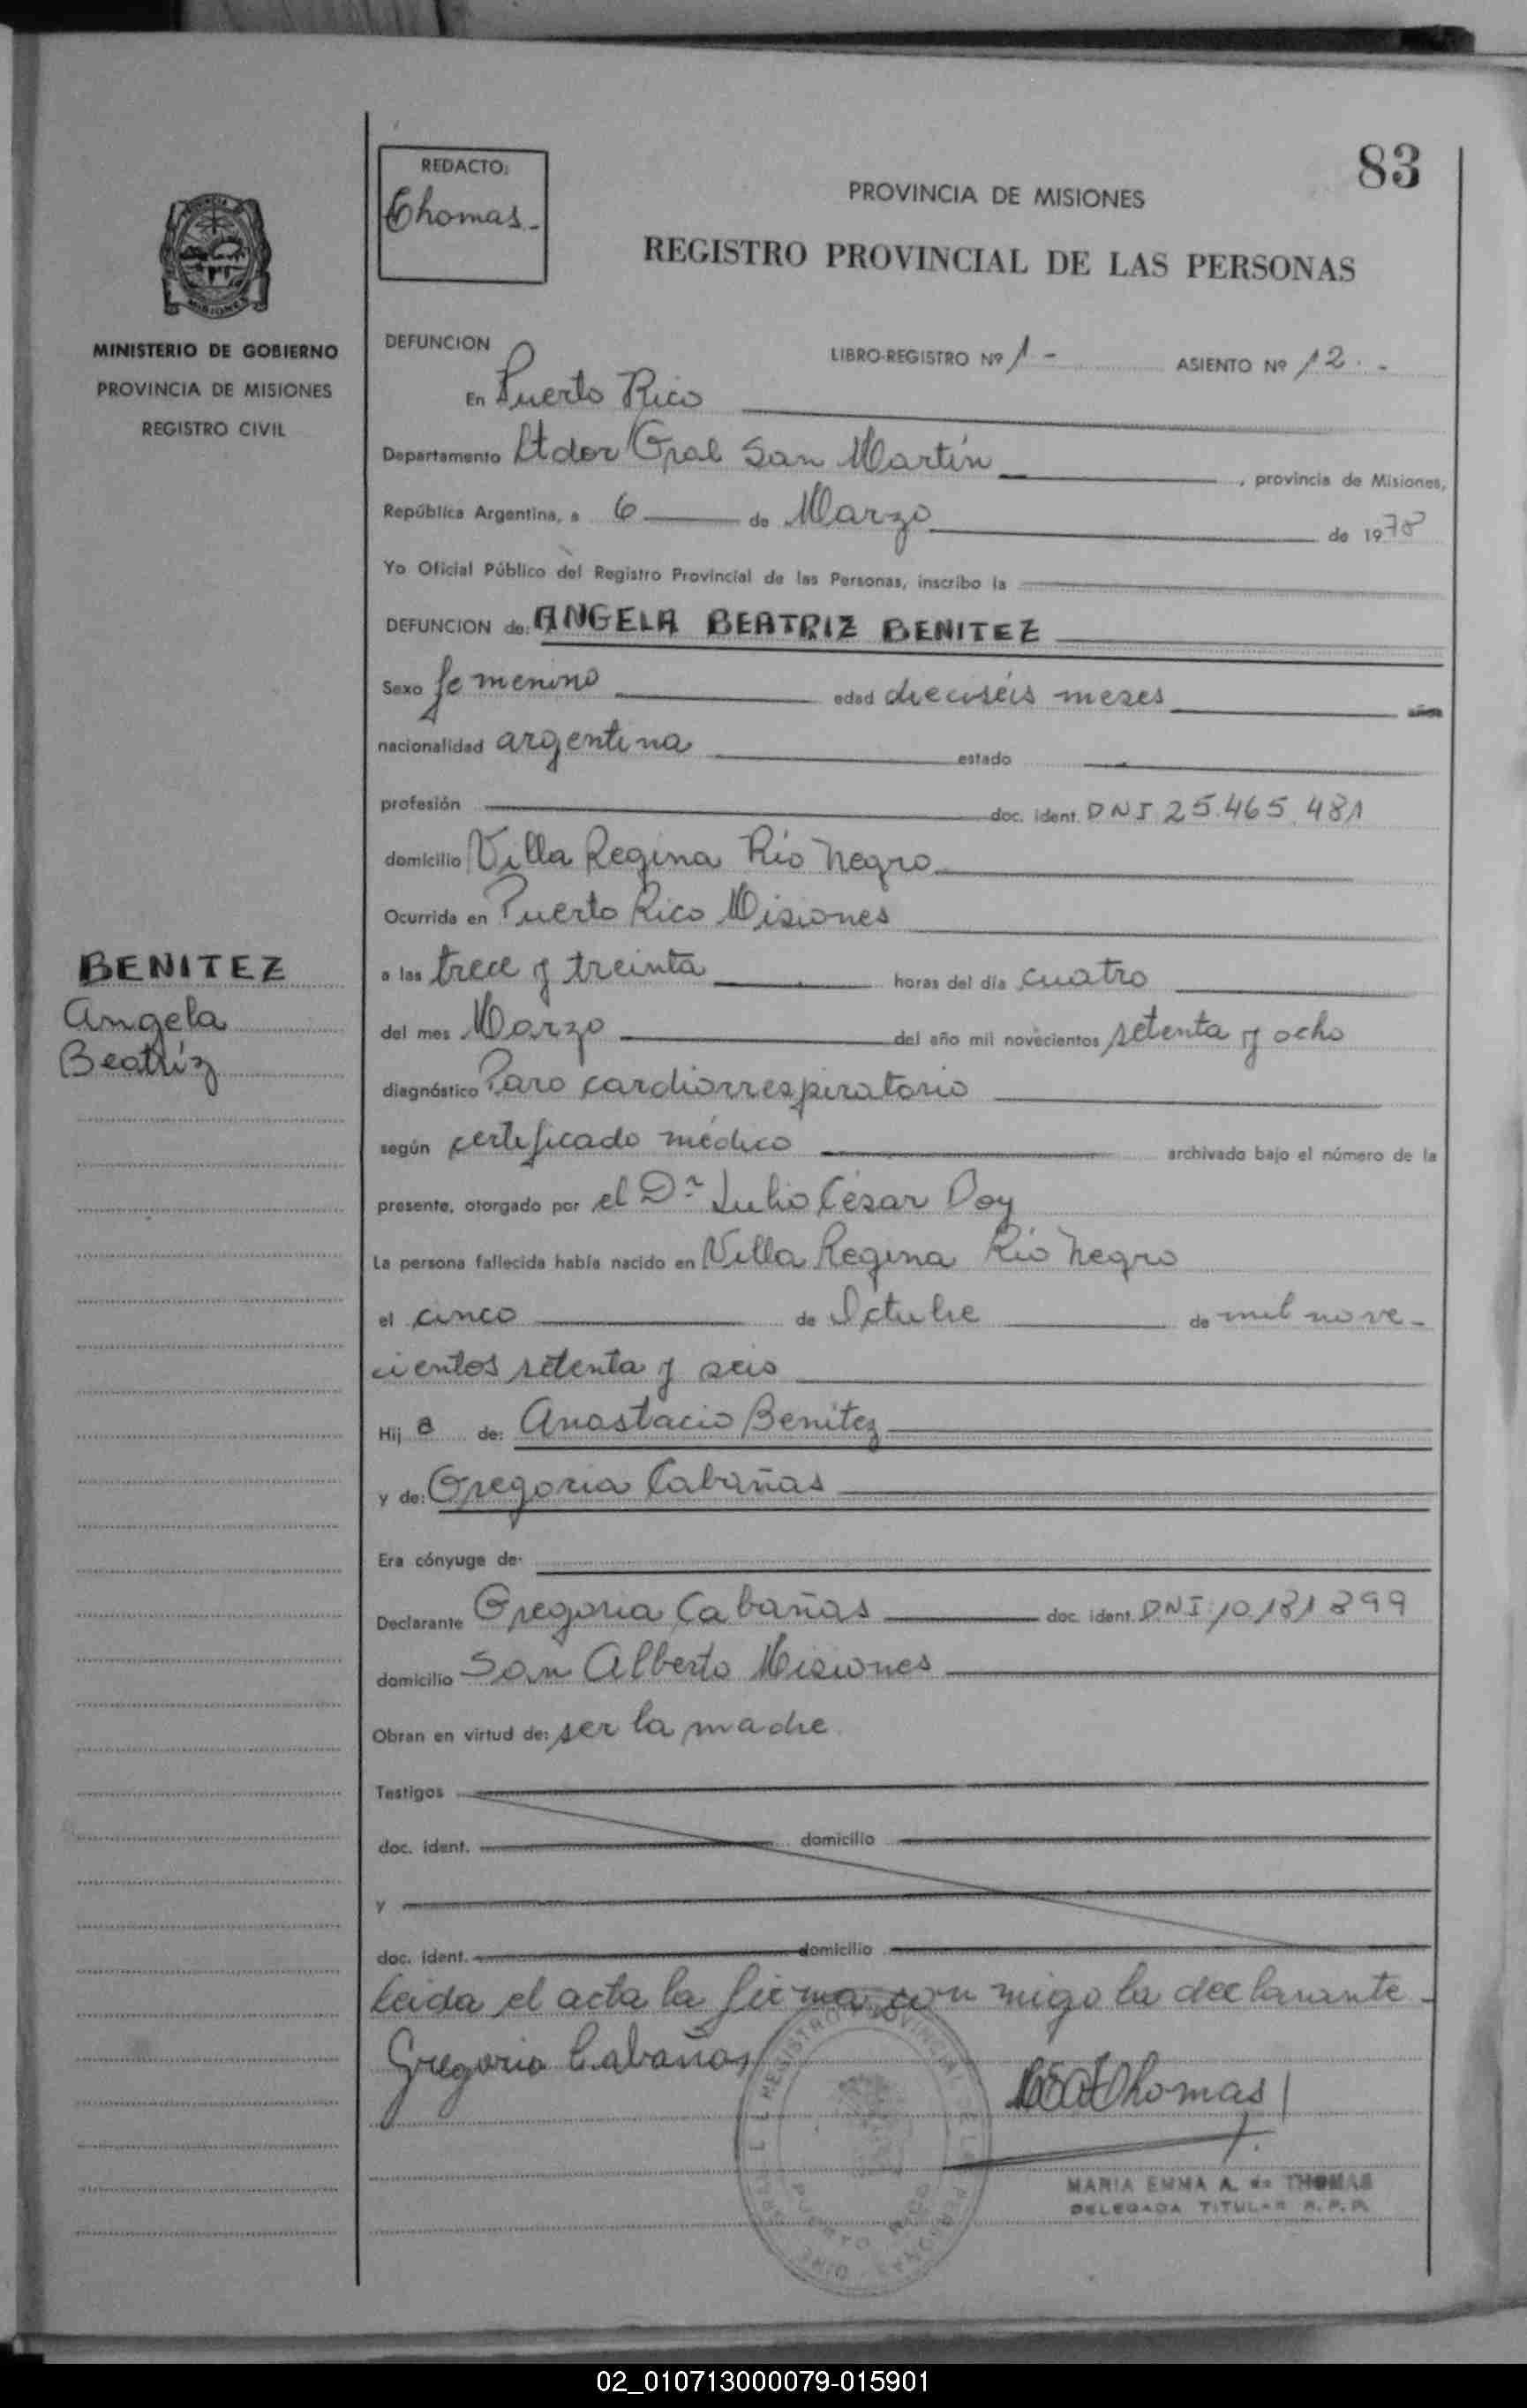 83
REDACTO:
Thomas.-
PROVINCIA DE MISIONES
REGISTRO PROVINCIAL DE LAS PERSONAS
MISIONES
MINISTERIO DE GOBIERNO
PROVINCIA DE MISIONES
REGISTRO CIVIL
DEFUNCION
LIBRO-REGISTRO Nº 1 - ASIENTO Nº 12.-
En Puerto Rico
Departamento Ltdor Gral San Martín, provincia de Misiones,
República Argentina, a 6 de Marzo de 1978
Yo Oficial Público del Registro Provincial de las Personas, inscribo la
DEFUNCION de: ANGELA BEATRIZ BENITEZ
Sexo femenino edad dieciséis meses
nacionalidad argentina estado
profesión doc. ident. DNI 25.465.481
domicilio Villa Regina Río Negro
Ocurrida en Puerto Rico Misiones
BENITEZ
Angela
Beatríz
a las trece y treinta horas del día cuatro
del mes Marzo del año mil novecientos setenta y ocho
diagnóstico Paro cardiorrespiratorio
según certificado médico archivado bajo el número de la
presente, otorgado por el Dr Julio César Doy
La persona fallecida había nacido en Villa Regina Río Negro
el cinco de Octubre de mil nove-
cientos setenta y seis
Hij a de: Anastacio Benítez
y de: Gregoria Cabañas
Era cónyuge de:
Declarante Gregoria Cabañas doc. ident. DNI 10.181.899
domicilio San Alberto Misiones
Obran en virtud de: ser la madre.
Testigos
doc. ident. domicilio
y
doc. ident. domicilio
Leida el acta la firma con migo la declarante.
Gregoria Cabañas
Thomas
MARIA EMMA A. de THOMAS
DELEGADA TITULAR R.P.P.
02_010713000079-015901